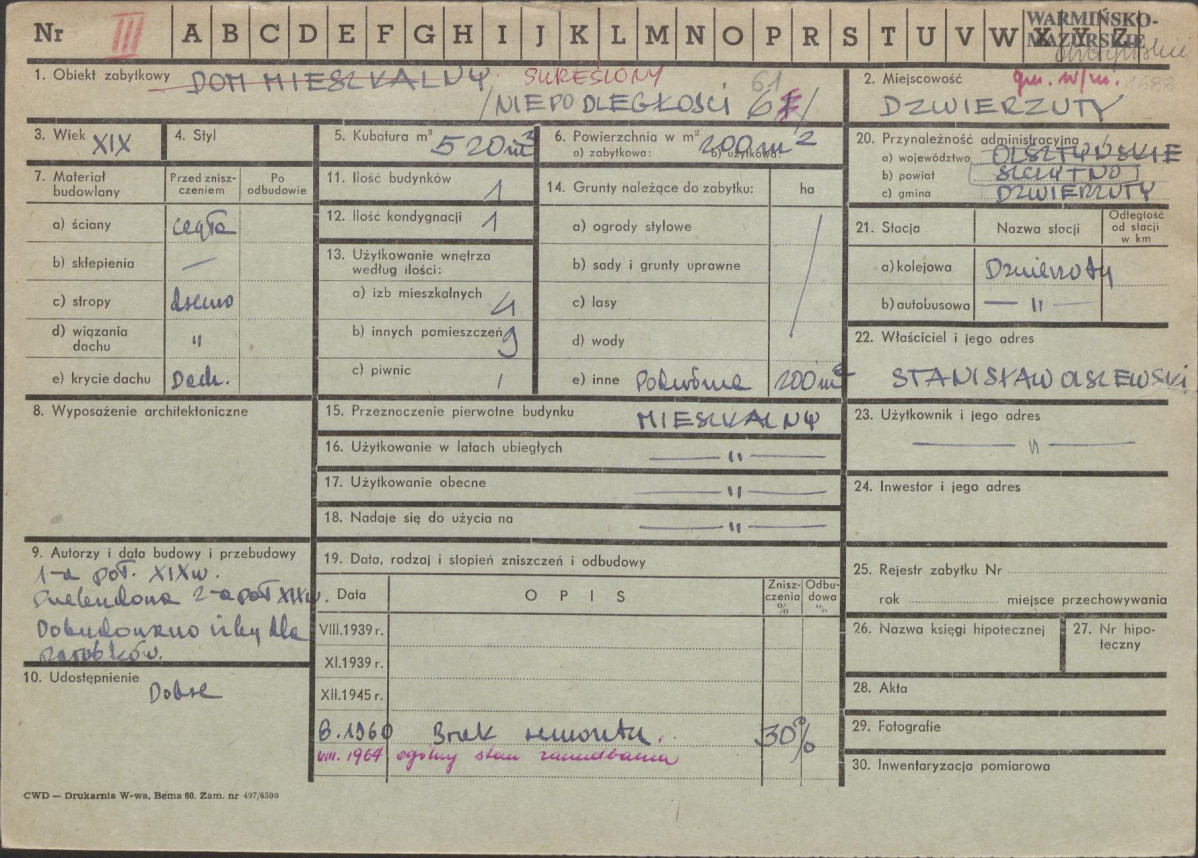 Nr III A B C D E F G H I J K L M N O P R S T U V W X Y Z
WARMIŃSKO-
MAZURSKIE
1. Obiekt zabytkowy DOM MIESZKALNY SKREŚLONY
/NIEPODLEGŁOŚCI 61
2. Miejscowość gm. w/m. 1688
DŹWIERZUTY
3. Wiek XIX
4. Styl
5. Kubatura m³ 520 m³
6. Powierzchnia w m² 200 m²
a) zabytkowa: b) użytkowa:
7. Materiał budowlany
Przed zniszczeniem
Po odbudowie
a) ściany cegła
b) sklepienia —
c) stropy drewno
d) wiązania dachu "
e) krycie dachu Dach.
8. Wyposażenie architektoniczne
9. Autorzy i data budowy i przebudowy
1-a poł. XIX w.
2-a poł XIX w.
Dobudowano izby dla
parobków.
10. Udostępnienie
Dobre
11. Ilość budynków 1
12. Ilość kondygnacji 1
13. Użytkowanie wnętrza
według ilości:
a) izb mieszkalnych 4
b) innych pomieszczeń 9
c) piwnic 1
14. Grunty należące do zabytku: ha
a) ogrody stylowe
b) sady i grunty uprawne
c) lasy
d) wody
e) inne Podwórze 200 m²
15. Przeznoczenie pierwotne budynku MIESZKALNY
16. Użytkowanie w latach ubiegłych — " —
17. Użytkowanie obecne — " —
18. Nadaje się do użycia na — " —
19. Data, rodzaj i stopień zniszczeń i odbudowy
Data
O P I S
Zniszczenia %
Odbudowa %
VIII.1939 r.
XI.1939 r.
XII.1945 r.
8.1960 Brak remontu. 30%
VIII. 1964 ogólny stan zaniedbania
20. Przynależność administracyjna
a) województwo OLSZTYŃSKIE
b) powiat SZCZYTNO
c) gmina DŹWIERZUTY
21. Stacja
Nazwa stacji
Odległość od stacji w km
a) kolejowa Dźwierzuty
b) autobusowa — " —
22. Właściciel i jego adres
STANISŁAW OLSZEWSKI
23. Użytkownik i jego adres
— " —
24. Inwestor i jego adres
25. Rejestr zabytku Nr
rok miejsce przechowywania
26. Nazwa księgi hipotecznej
27. Nr hipoteczny
28. Akta
29. Fotografie
30. Inwentaryzacja pomiarowa
CWD — Drukarnia W-wa, Bema 60. Zam. nr 497/6500